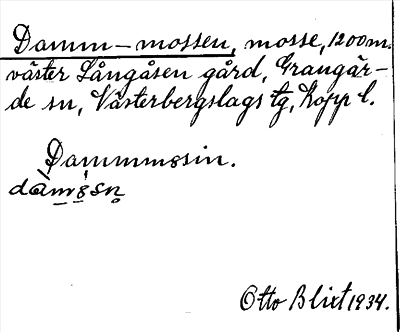 Damm-mossen, mosse, 1200 m.
väster Långåsen gård, Grangär-
de sn, Västerbergslags tg, Kopp l.
Dammmosin.
Otto Blixt 1934.